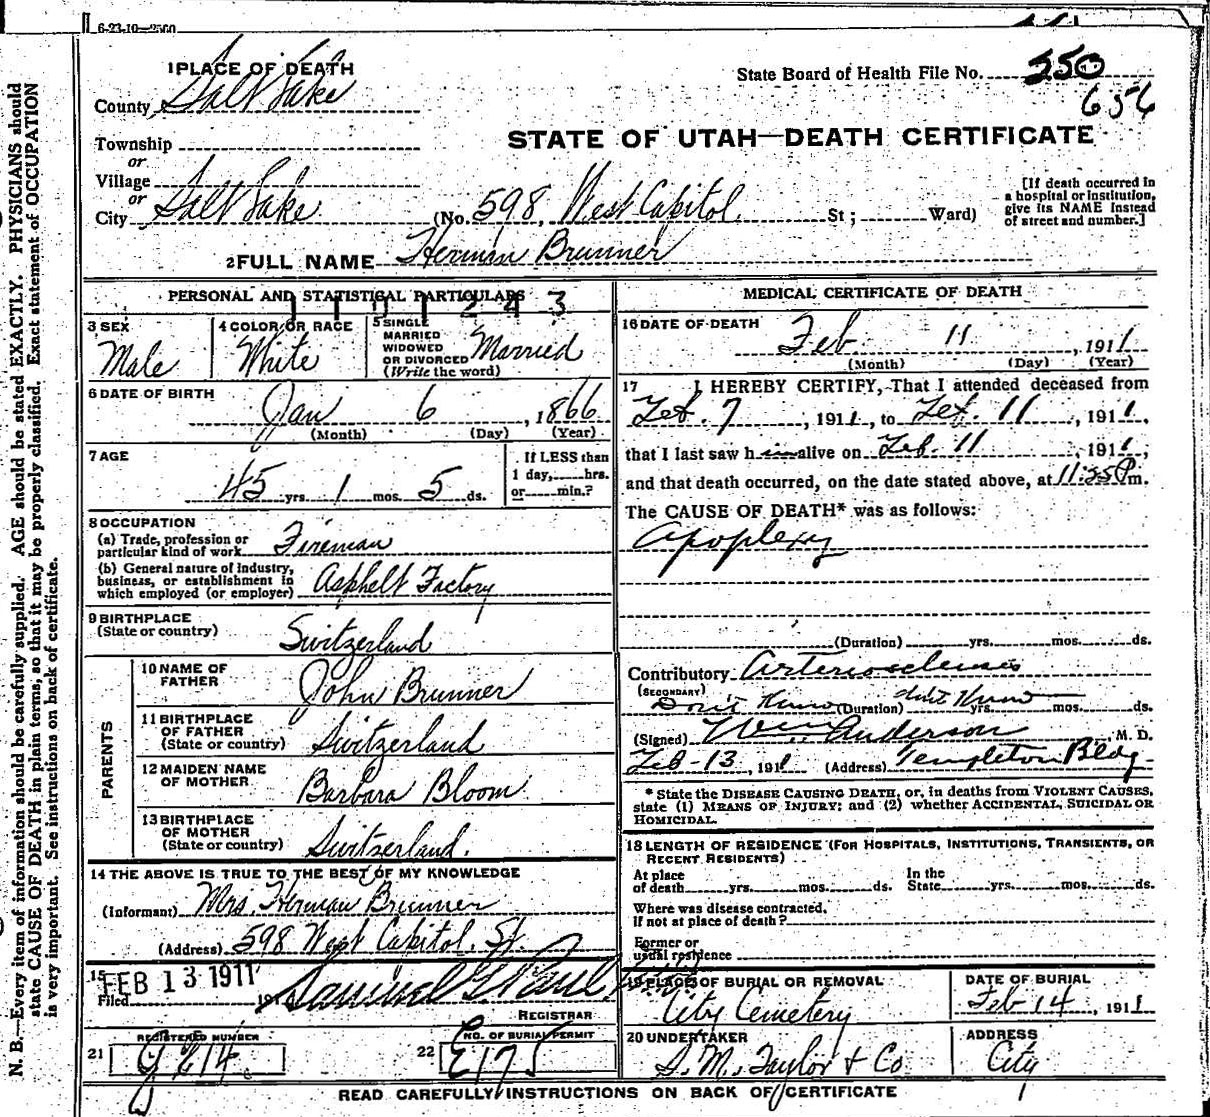 6-23-10—2500
1 PLACE OF DEATH
State Board of Health File No. 550
656
County Salt Lake
STATE OF UTAH—DEATH CERTIFICATE
Township
or
Village
or
City Salt Lake (No. 598, West Capitol St; Ward)
[If death occurred in a hospital or institution, give its NAME instead of street and number.]
2 FULL NAME Herman Brunner
PERSONAL AND STATISTICAL PARTICULARS
1101243
3 SEX
Male
4 COLOR OR RACE
White
5 SINGLE
MARRIED
WIDOWED
OR DIVORCED
(Write the word)
Married
6 DATE OF BIRTH
Jan 6, 1866
(Month) (Day) (Year)
7 AGE
45 yrs. 1 mos. 5 ds.
If LESS than
1 day, hrs.
or min.?
8 OCCUPATION
(a) Trade, profession or
particular kind of work Fireman
(b) General nature of industry,
business, or establishment in
which employed (or employer) Asphelt Factory
9 BIRTHPLACE
(State or country) Switzerland
PARENTS
10 NAME OF
FATHER John Brunner
11 BIRTHPLACE
OF FATHER
(State or country) Switzerland
12 MAIDEN NAME
OF MOTHER Barbara Bloom
13 BIRTHPLACE
OF MOTHER
(State or country) Switzerland.
14 THE ABOVE IS TRUE TO THE BEST OF MY KNOWLEDGE
(Informant) Mrs. Herman Brunner
(Address) 598 West Capitol St.
15 FEB 13 1911
Filed 191
Samuel G. Paul
REGISTRAR
REGISTERED NUMBER
21
NO. OF BURIAL PERMIT
22 E175
MEDICAL CERTIFICATE OF DEATH
16 DATE OF DEATH
Feb 11, 1911
(Month) (Day) (Year)
17 I HEREBY CERTIFY, That I attended deceased from
Feb. 7, 1911, to Feb. 11, 1911,
that I last saw him alive on Feb. 11, 1911;
and that death occurred, on the date stated above, at 11:55 Pm.
The CAUSE OF DEATH* was as follows:
Apoplexy
(Duration) yrs. mos. ds.
Contributory Arteriosclerosis
(SECONDARY)
Don't Know (Duration) don't Know yrs. mos. ds.
(Signed) Wm. Anderson, M. D.
Feb-13, 1911 (Address) Templeton Bldg.
* State the DISEASE CAUSING DEATH, or, in deaths from VIOLENT CAUSES,
state (1) MEANS OF INJURY; and (2) whether ACCIDENTAL, SUICIDAL OR
HOMICIDAL.
18 LENGTH OF RESIDENCE (FOR HOSPITALS, INSTITUTIONS, TRANSIENTS, OR
RECENT RESIDENTS)
At place
of death yrs. mos. ds.
In the
State yrs. mos. ds.
Where was disease contracted,
if not at place of death?
Former or
usual residence
19 PLACE OF BURIAL OR REMOVAL
City Cemetery
DATE OF BURIAL
Feb 14, 1911
20 UNDERTAKER
S. M. Taylor & Co
ADDRESS
City
READ CAREFULLY INSTRUCTIONS ON BACK OF CERTIFICATE
N. B.—Every item of information should be carefully supplied. AGE should be stated EXACTLY. PHYSICIANS should
state CAUSE OF DEATH in plain terms, so that it may be properly classified. Exact statement of OCCUPATION
is very important. See instructions on back of certificate.